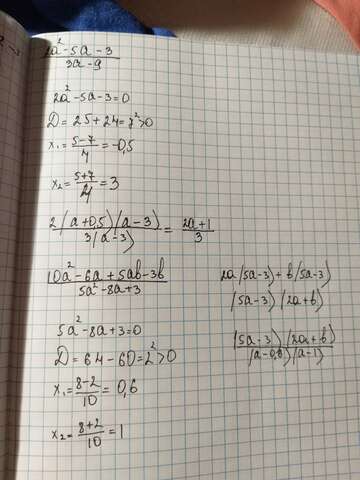 2a²-5a-3
3a-9
2a²-5a-3=0
D=25+24=7²>0
x₁=5-7/4=-0,5
x₂=5+7/4=3
2(a+0,5)(a-3)/3(a-3)=2a+1/3
10a²-6a+5ab-3b
5a²-8a+3
2a(5a-3)+b(5a-3)
(5a-3)(2a+b)
5a²-8a+3=0
D=64-60=2²>0
x₁=8-2/10=0,6
x₂=8+2/10=1
(5a-3)(2a+b)
(a-0,6)(a-1)